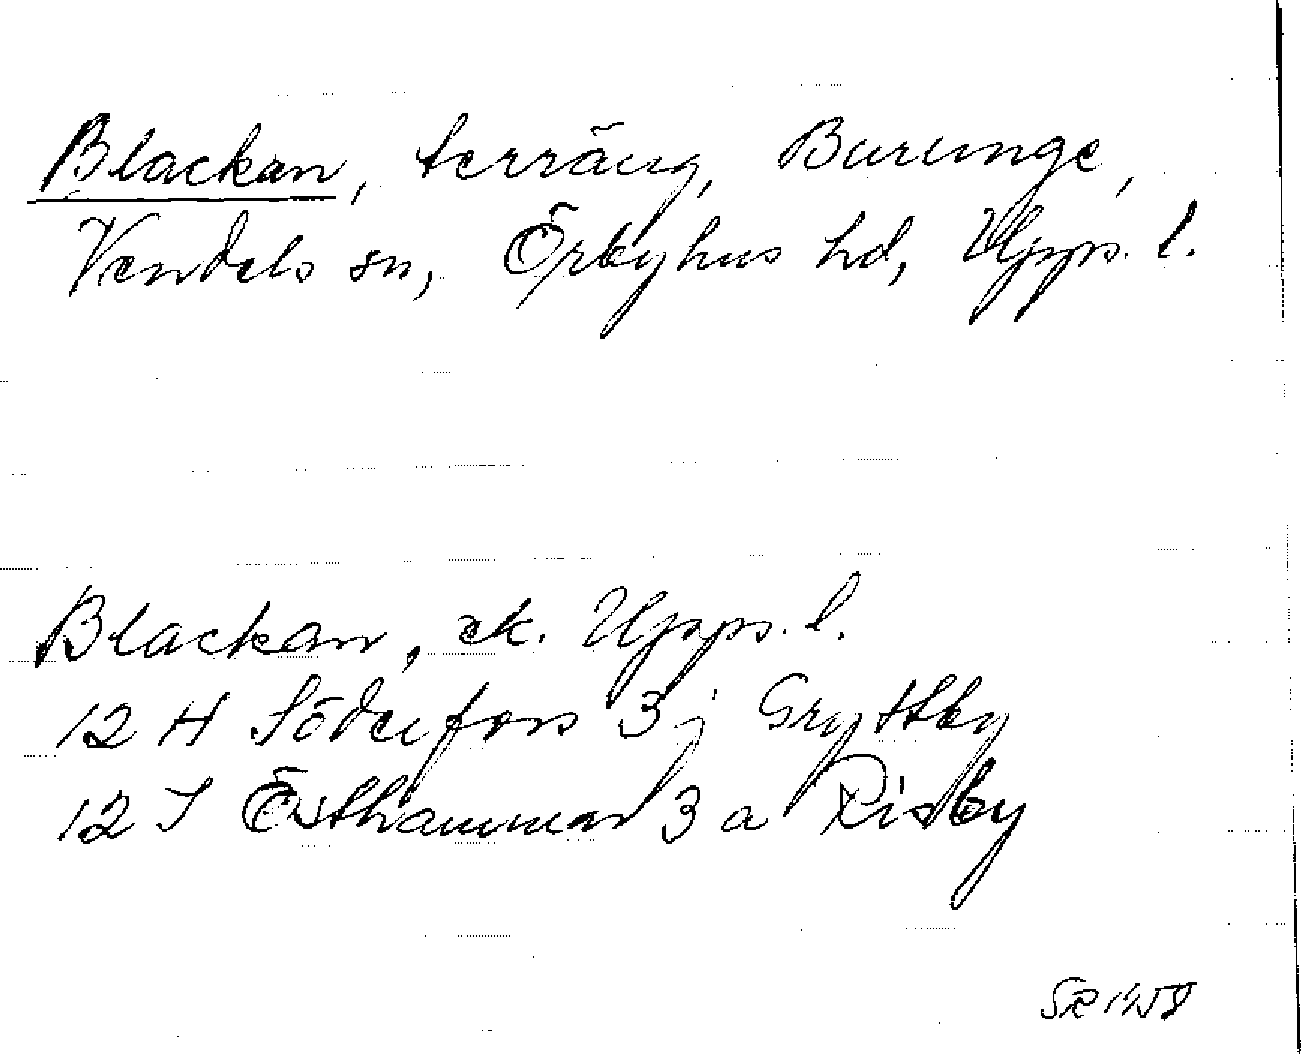 Blackan, terräng, Burunge,
Vendels sn, Örbyhus hd, Upps. l.
Blackan, ek. Upps. l.
12 H Söderfors 3 j Gryttby
12 I Östhammar 3 a Risby
SR 1958